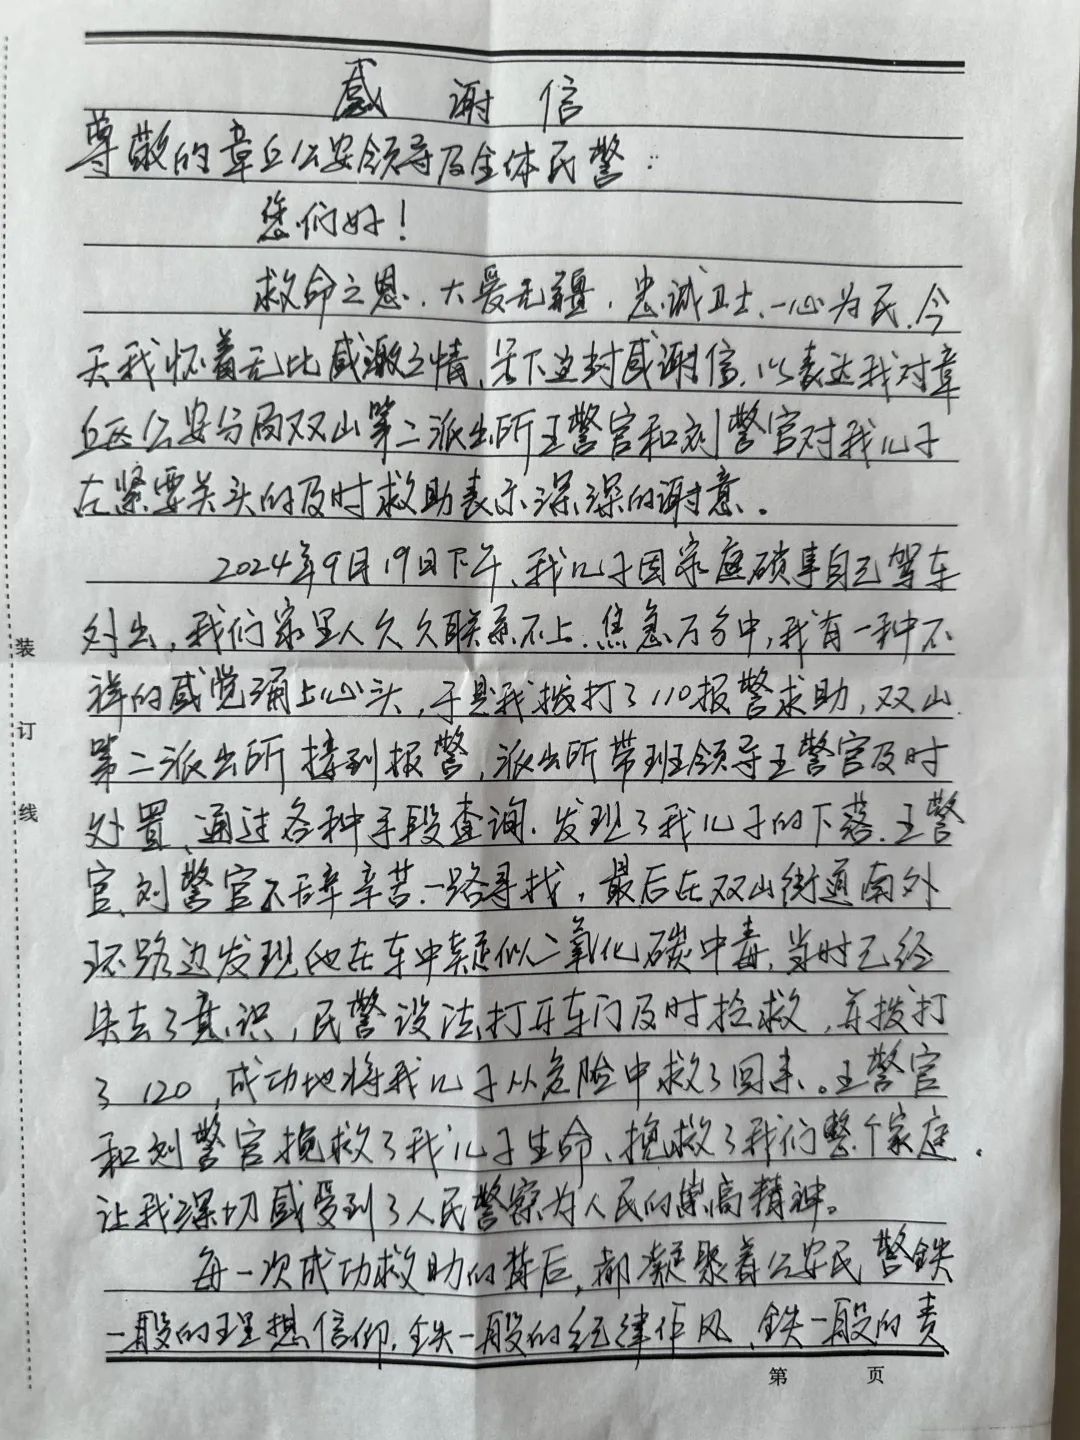 感谢信
尊敬的章丘公安领导及全体民警:
您们好!
救命之恩,大爱无疆,忠诚卫士,一心为民,今
天我怀着无比感激之情,写下这封感谢信,以表达我对章
丘区公安分局双山第二派出所王警官和刘警官对我儿子
在紧要关头的及时救助表示深深的谢意。
2024年9月19日下午,我儿子因家庭琐事自己驾车
外出,我们家里人久久联系不上,焦急万分中,我有一种不
祥的感觉涌上心头,于是我拨打了110报警求助,双山
第二派出所接到报警,派出所带班领导王警官及时
处置、通过各种手段查询,发现了我儿子的下落,王警
官、刘警官不辞辛苦一路寻找,最后在双山街道南外
环路边发现他在车中疑似二氧化碳中毒,当时已经
失去了意识,民警设法打开车门及时抢救,并拨打
了120,成功地将我儿子从危险中救了回来。王警官
和刘警官挽救了我儿子生命、挽救了我们整个家庭.
让我深切感受到了人民警察为人民的崇高精神。
每一次成功救助的背后,都凝聚着公安民警铁
一般的理想信仰,铁一般的纪律作风、铁一般的责
第 页
装
订
线